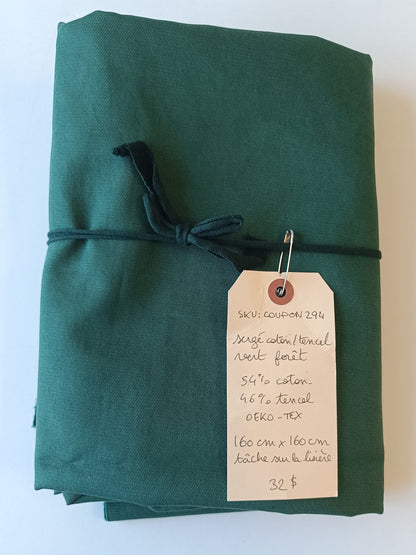 SKU: COUPON 294
sergé coton/tencel
vert forêt
54% coton
46% tencel
OEKO-TEX
160 cm x 160 cm
tâche sur la lisière
32 $